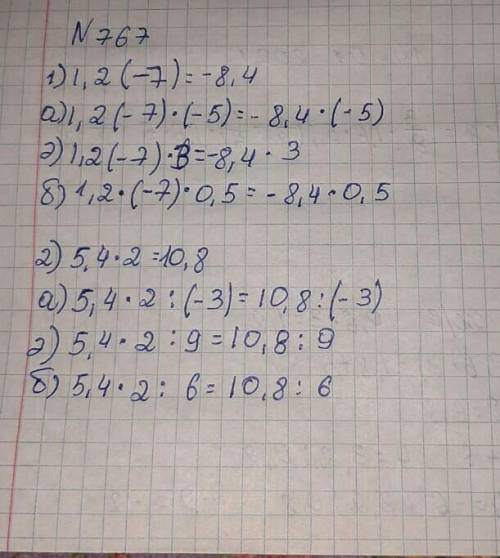 N 767
1) 1,2 (-7) = -8,4
а) 1,2 (-7) · (-5) = - 8,4 · (-5)
г) 1,2 (-7) · 3 = -8,4 · 3
б) 1,2 · (-7) · 0,5 = - 8,4 · 0,5
2) 5,4 · 2 = 10,8
а) 5,4 · 2 : (-3) = 10,8 : (-3)
г) 5,4 · 2 : 9 = 10,8 : 9
б) 5,4 · 2 : 6 = 10,8 : 6